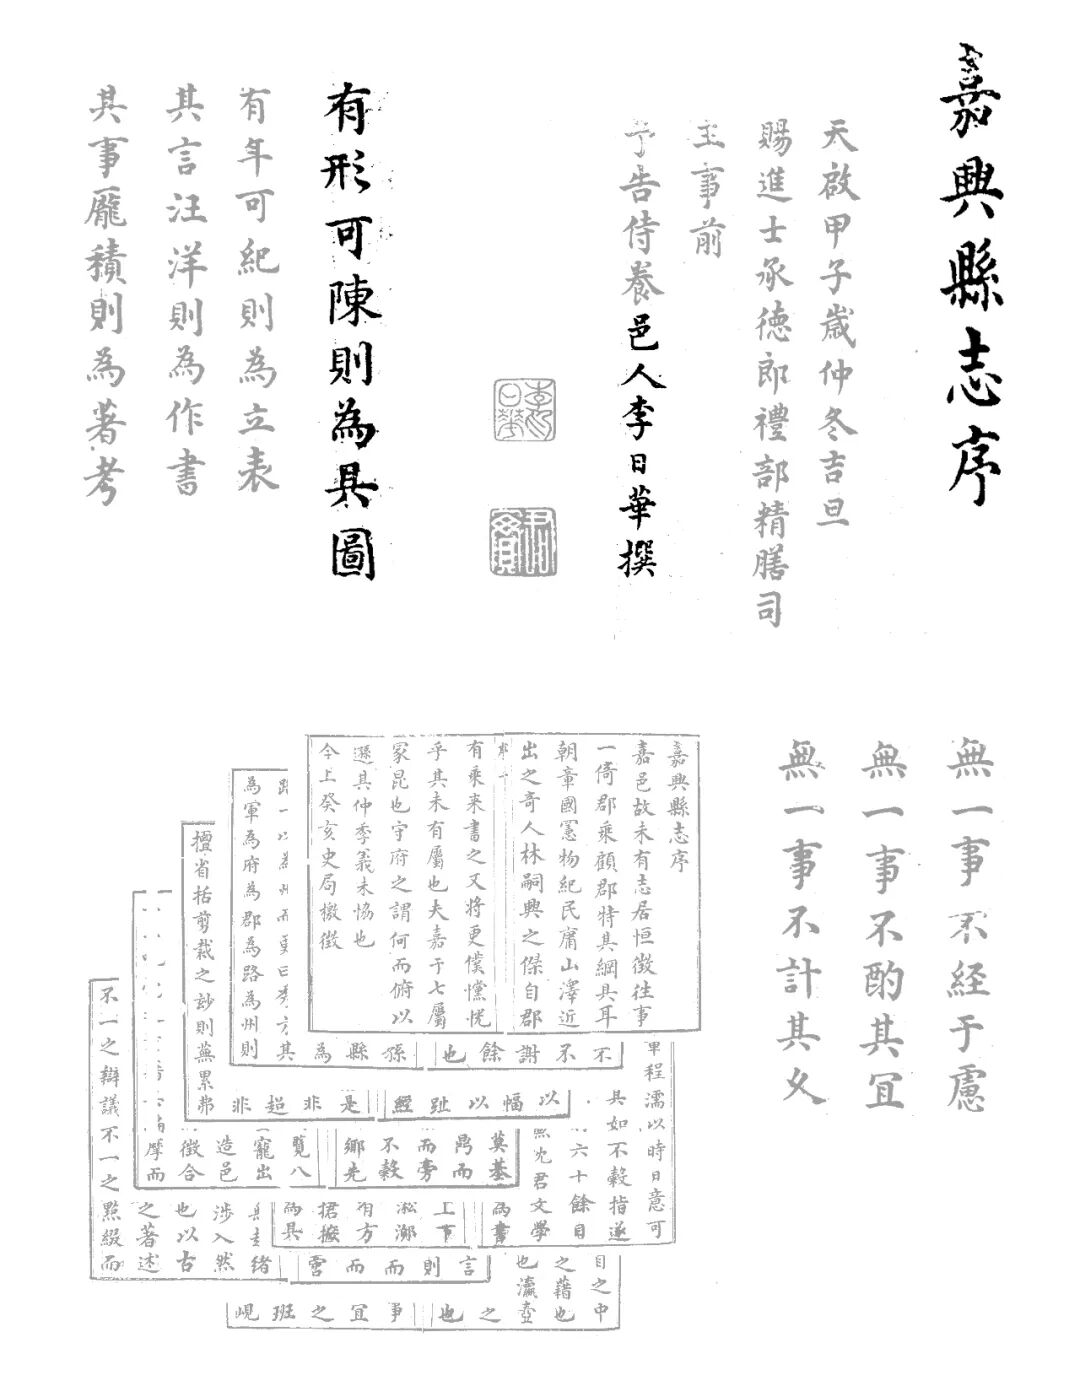 嘉興縣志序
天啟甲子歲仲冬吉旦
賜進士承德郎禮部精膳司
主事前
予告侍養邑人李日華撰
有形可陳則為具圖
有年可紀則為立表
其言汪洋則為作書
其事龐積則為著考
無一事不経于慮
無一事不酌其冝
無一事不計其乆
嘉興縣志序
嘉邑故未有志居恒徵往事
一倚郡乘顧郡特其綱具耳
朝章國憲物紀民庸山澤近
出之奇人林嗣興之傑自郡
有乘来書之又将更僕戃恍
乎其未有屬也夫嘉于七屬
冢昆也守府之謂何而俯以
遜其仲季義未恊也
今上癸亥史局檄徵
不
不
謝
餘
也
孫
縣
為
其
為軍為府為郡為路為州則
以
幅
以
趾
經
是
非
超
非
擅省括剪裁之玅則蕪累弗
程濡以時日意可
其如不穀指遂
六十餘日
君文學
莫基
而
而旁
不穀
鄉先
覽八
寵出
造邑
徵合
摩而
為書
上下
有方
為具
緒
涉入然
也以古
之著述
不一之辯議不一之點綴而
言
則
而
而
目之中
之藉也
也瀛壺
之
也
事
冝
之
班
峴